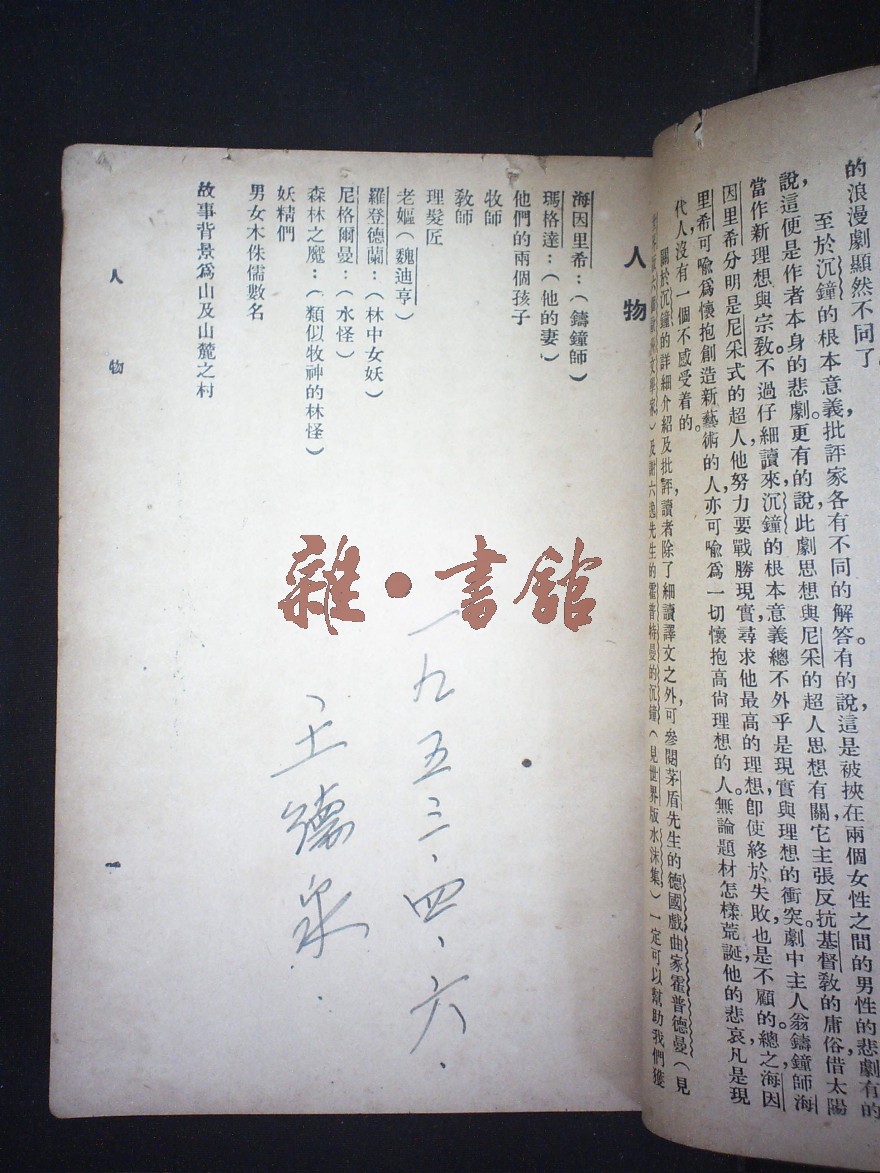 的浪漫劇顯然不同了。
至於沉鐘的根本意義，批評家各有不同的解答。有的說，這是被挾在兩個女性之間的男性的悲劇，有的
說，這便是作者本身的悲劇。更有的說，此劇思想與尼采的超人思想有關，它主張反抗基督敎的庸俗，借太陽
當作新理想與宗敎。不過仔細讀來，沉鐘的根本意義總不外乎是現實與理想的衝突。劇中主人翁鑄鐘師海
因里希分明是尼采式的超人，他努力要戰勝現實，尋求他最高的理想，卽使終於失敗，也是不顧的。總之，海因
里希可喩爲懷抱創造新藝術的人，亦可喩爲一切懷抱高尙理想的人。無論題材怎樣荒誕，他的悲哀，凡是現
代人，沒有一個不感受着的。
關於沉鐘的詳細介紹及批評，讀者除了細讀譯文之外，可參閱茅盾先生的德國戲曲家霍普德曼（見
及謝六逸先生的霍普特曼的沉鐘（見世界版水沫集）一定可以幫助我們獲
人物
海因里希：（鑄鐘師）
瑪格達：（他的妻）
他們的兩個孩子
牧師
敎師
理髮匠
老嫗（魏迪亨）
羅登德蘭：（林中女妖）
尼格爾曼：（水怪）
森林之魔：（類似牧神的林怪）
妖精們
男女木侏儒數名
故事背景爲山及山麓之村
人物
一
雜·書館
一九五三、四、六.
王德泉